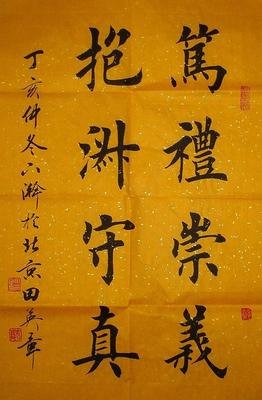 篤禮崇義
抱淑守真
丁亥仲冬下瀚於北京田英章